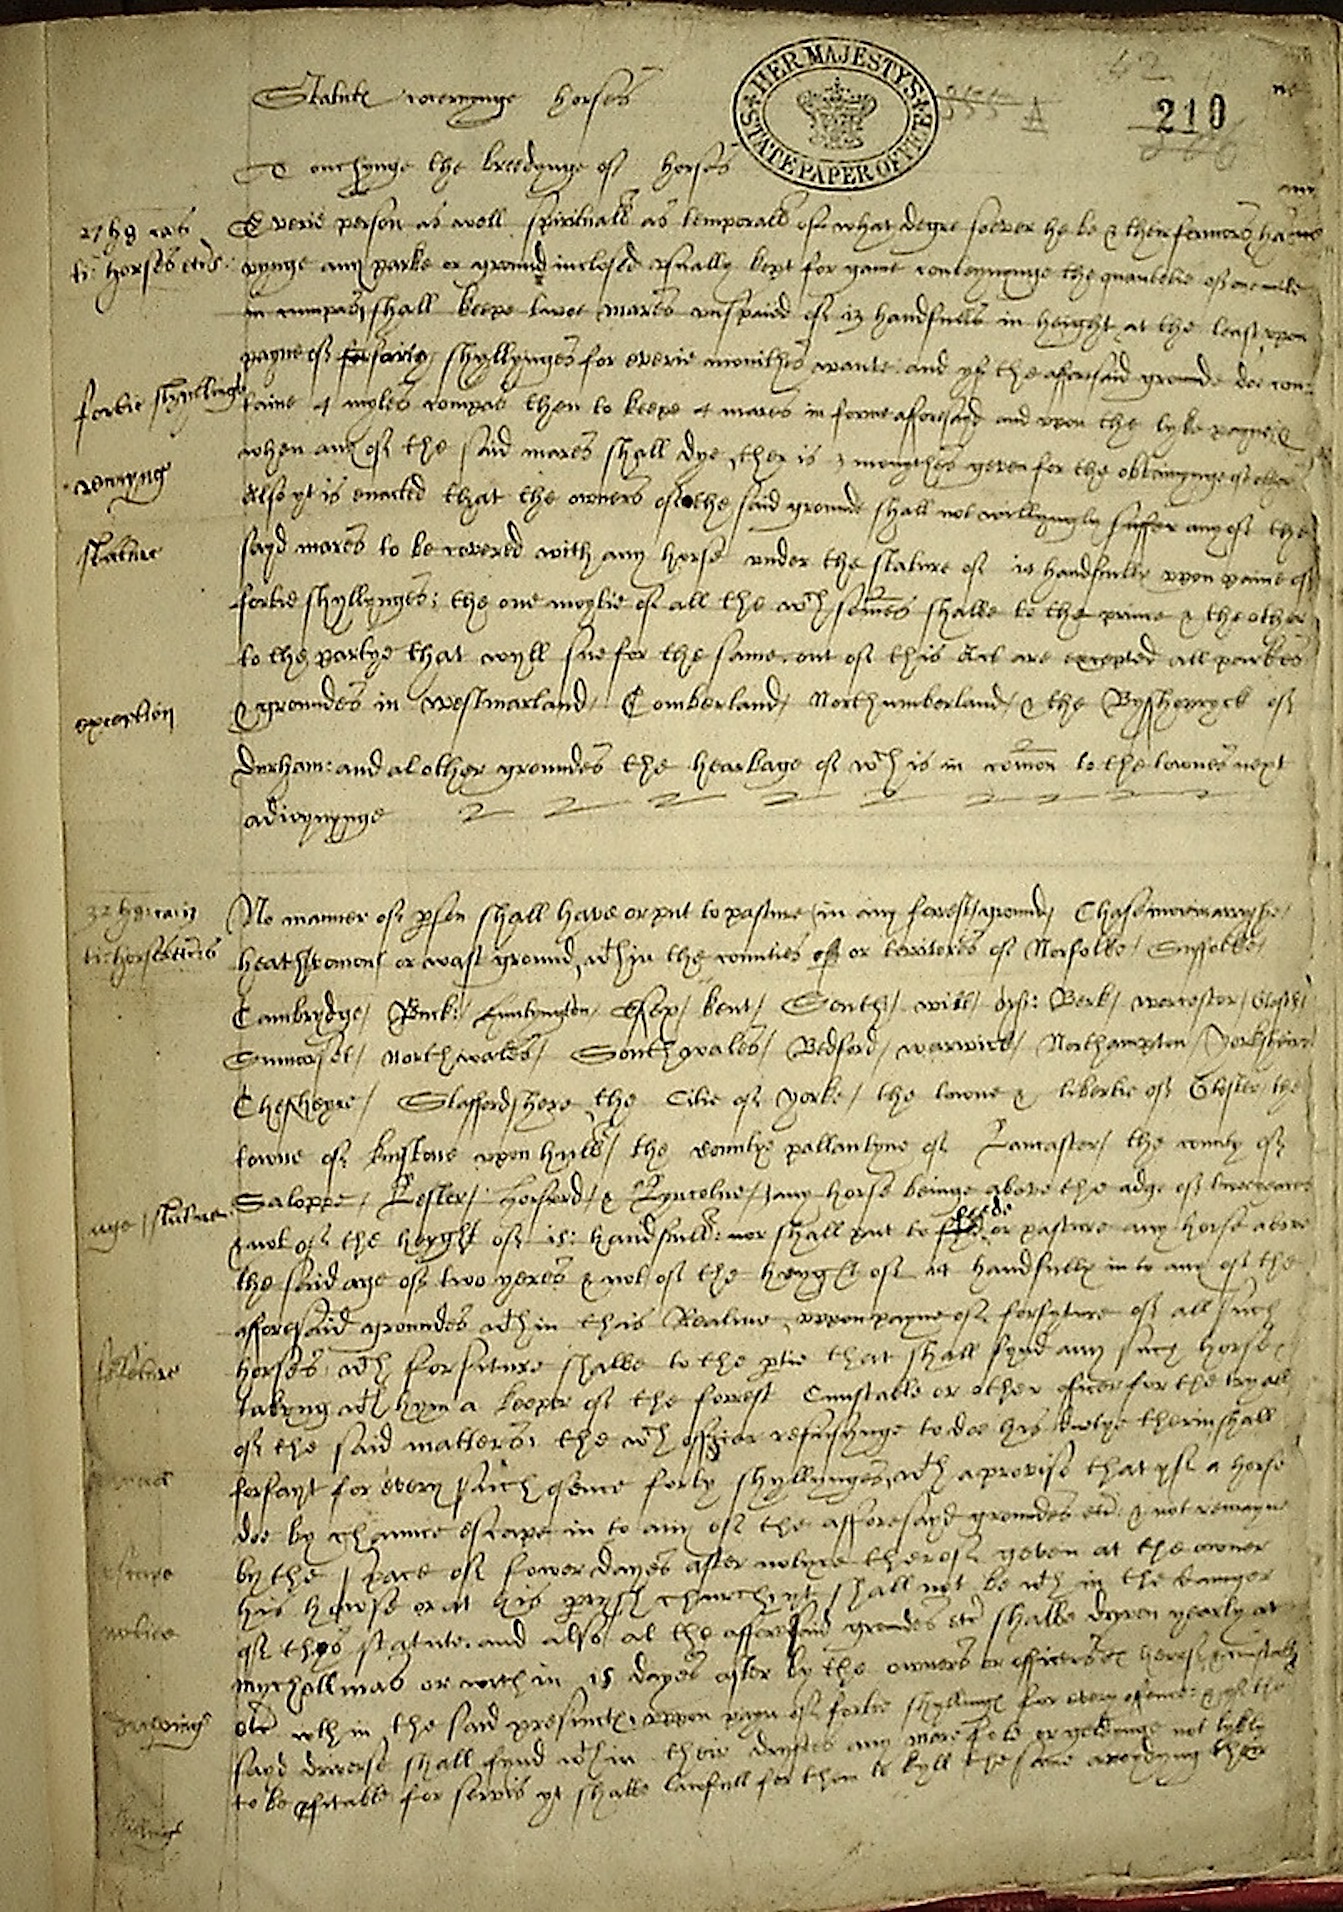 Statute concernynge horses
HER MAJESTY'S STATE PAPER OFFICE
210
Touchynge the breedynge of horses
27 h 8 ca 6
ti: horses etc:
Everie person as well spirituall as temporall of what degre soever he be & their fermors ha
vynge any parke or ground inclosed usually kept for game conteynynge the quantitie of one mile
in cumpas, shall keepe twoe mares unspaied of 13 handfulls in height at the least, upon
payne of fortie shyllynges for everie monthes wante: and yf the afforesaid grounde doe con=
fortie shyllinges
taine 4 myles compas then to keepe 4 mares in forme aforesayd and upon the lyke payne, &
when any of the said mares shall dye, ther is 3 monythes geven for the obteynynge of other
Also yt is enacted that the owners of the said grounde shall not wyllyngly suffer any of the
stature
sayd mares to be covered with any horse under the stature of 14 handfulls upon paine of
fortie shyllynges: the one moytie of all the wch somes shalbe to the prince & the other
to the partye that wyll sue for the same. out of this Act are excepted all parkes
exception
& groundes in Westmarland, Comberland, Northumberland, & the Bysshopryck of
Durham: and al other groundes the hearbage of wch is in comon to the townes next
adioynynge
32 h 8: ca: 13
ti: horses etc
No manner of pson shall have or put to pasture in any forest, ground, Chase
heath, comons or wast ground, wthin the counties of or territores of Norfolke, Suffolke,
Cambrydge, Buck: Huntyngton, Essex, kent, South, wilt, Berk, worcester, Glost,
Summerset, North wales, South wales, Bedford, warwick, Northampton, Yorkshire
Cheshyre, Staffordshere, the Citie of Yorke, the towne & libertie of Gloster, the
towne of kinstone upon hull, the countye pallantyne of Lancaster, the county of
age, stature
Saloppe, Lester, Herford, & Lyncolne, any horse beinge above the adge of twoe yeares
& not of the heyght of 15: handfulls: nor shall put to feede or pasture any horse above
the said age of two yeres & not of the heyght of 14 handfulls in to any of the
afforesaid groundes wthin this Realme, uppon payne of forfyture of all such
horses: wch forfiture shalbe to the ptie that shall fynd any such horse,
takyng wth hym a keeper of the forrest Cunstable or other officer for the tryall
of the said matters, the wch officer refusynge to doe his dutye therin, shall
forfayt for every such ofence forty shyllynges, wth a proviso that yf a horse
doe by chaunce escape in to any of the afforesayd groundes etc & not remayne
by the space of fower dayes after notyce therof geven at the owner
notice
his howse or at his parysh church, yt shall not be wth in the daunger
of thys statute. and also al the afforesaid groundes etc shalbe dryven yearly at
mychallmas or with in 15 dayes after by the owners or officers
etc wth in the said presinctes, uppon payn of fortie shyllings for every ofence: & yf the
sayd drivers shall fynd wthin their dryftes any mare fole or geldynge not lykly
to be pfitable for servis yt shalbe lawfull for them to kyll the same